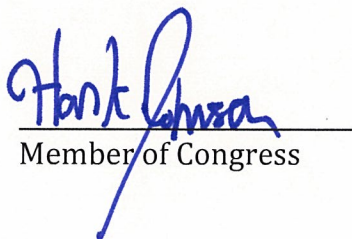 Hank Johnson
Member of Congress